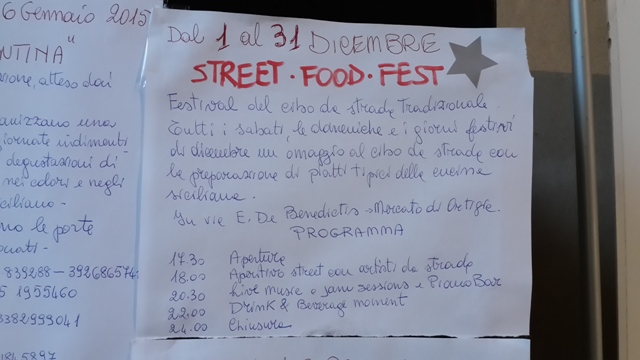 6 Gennaio 2015
NTINA"
sione, atteso dai
anizzano una
giornate indimenti
degustazioni di
nei colori e negli
iciliano -
no le porte
onati -
839288 - 3926865746
5 1955460
3382999041
Dal 1 al 31 DICEMBRE
STREET · FOOD · FEST
Festival del cibo da strada Tradizionale.
Tutti i sabati, le domeniche e i giorni festivi
di dicembre un omaggio al cibo da strada con
la preparazione di piatti tipici della cucina
siciliana.
In via E. De Benedictis - Mercato di Ortigia.
PROGRAMMA
17.30 Apertura
18.00 Aperitivo street con artisti da strada
20.30 Live music o jam sessions e Piano Bar
22.00 Drink & Beverage moment
24.00 Chiusura